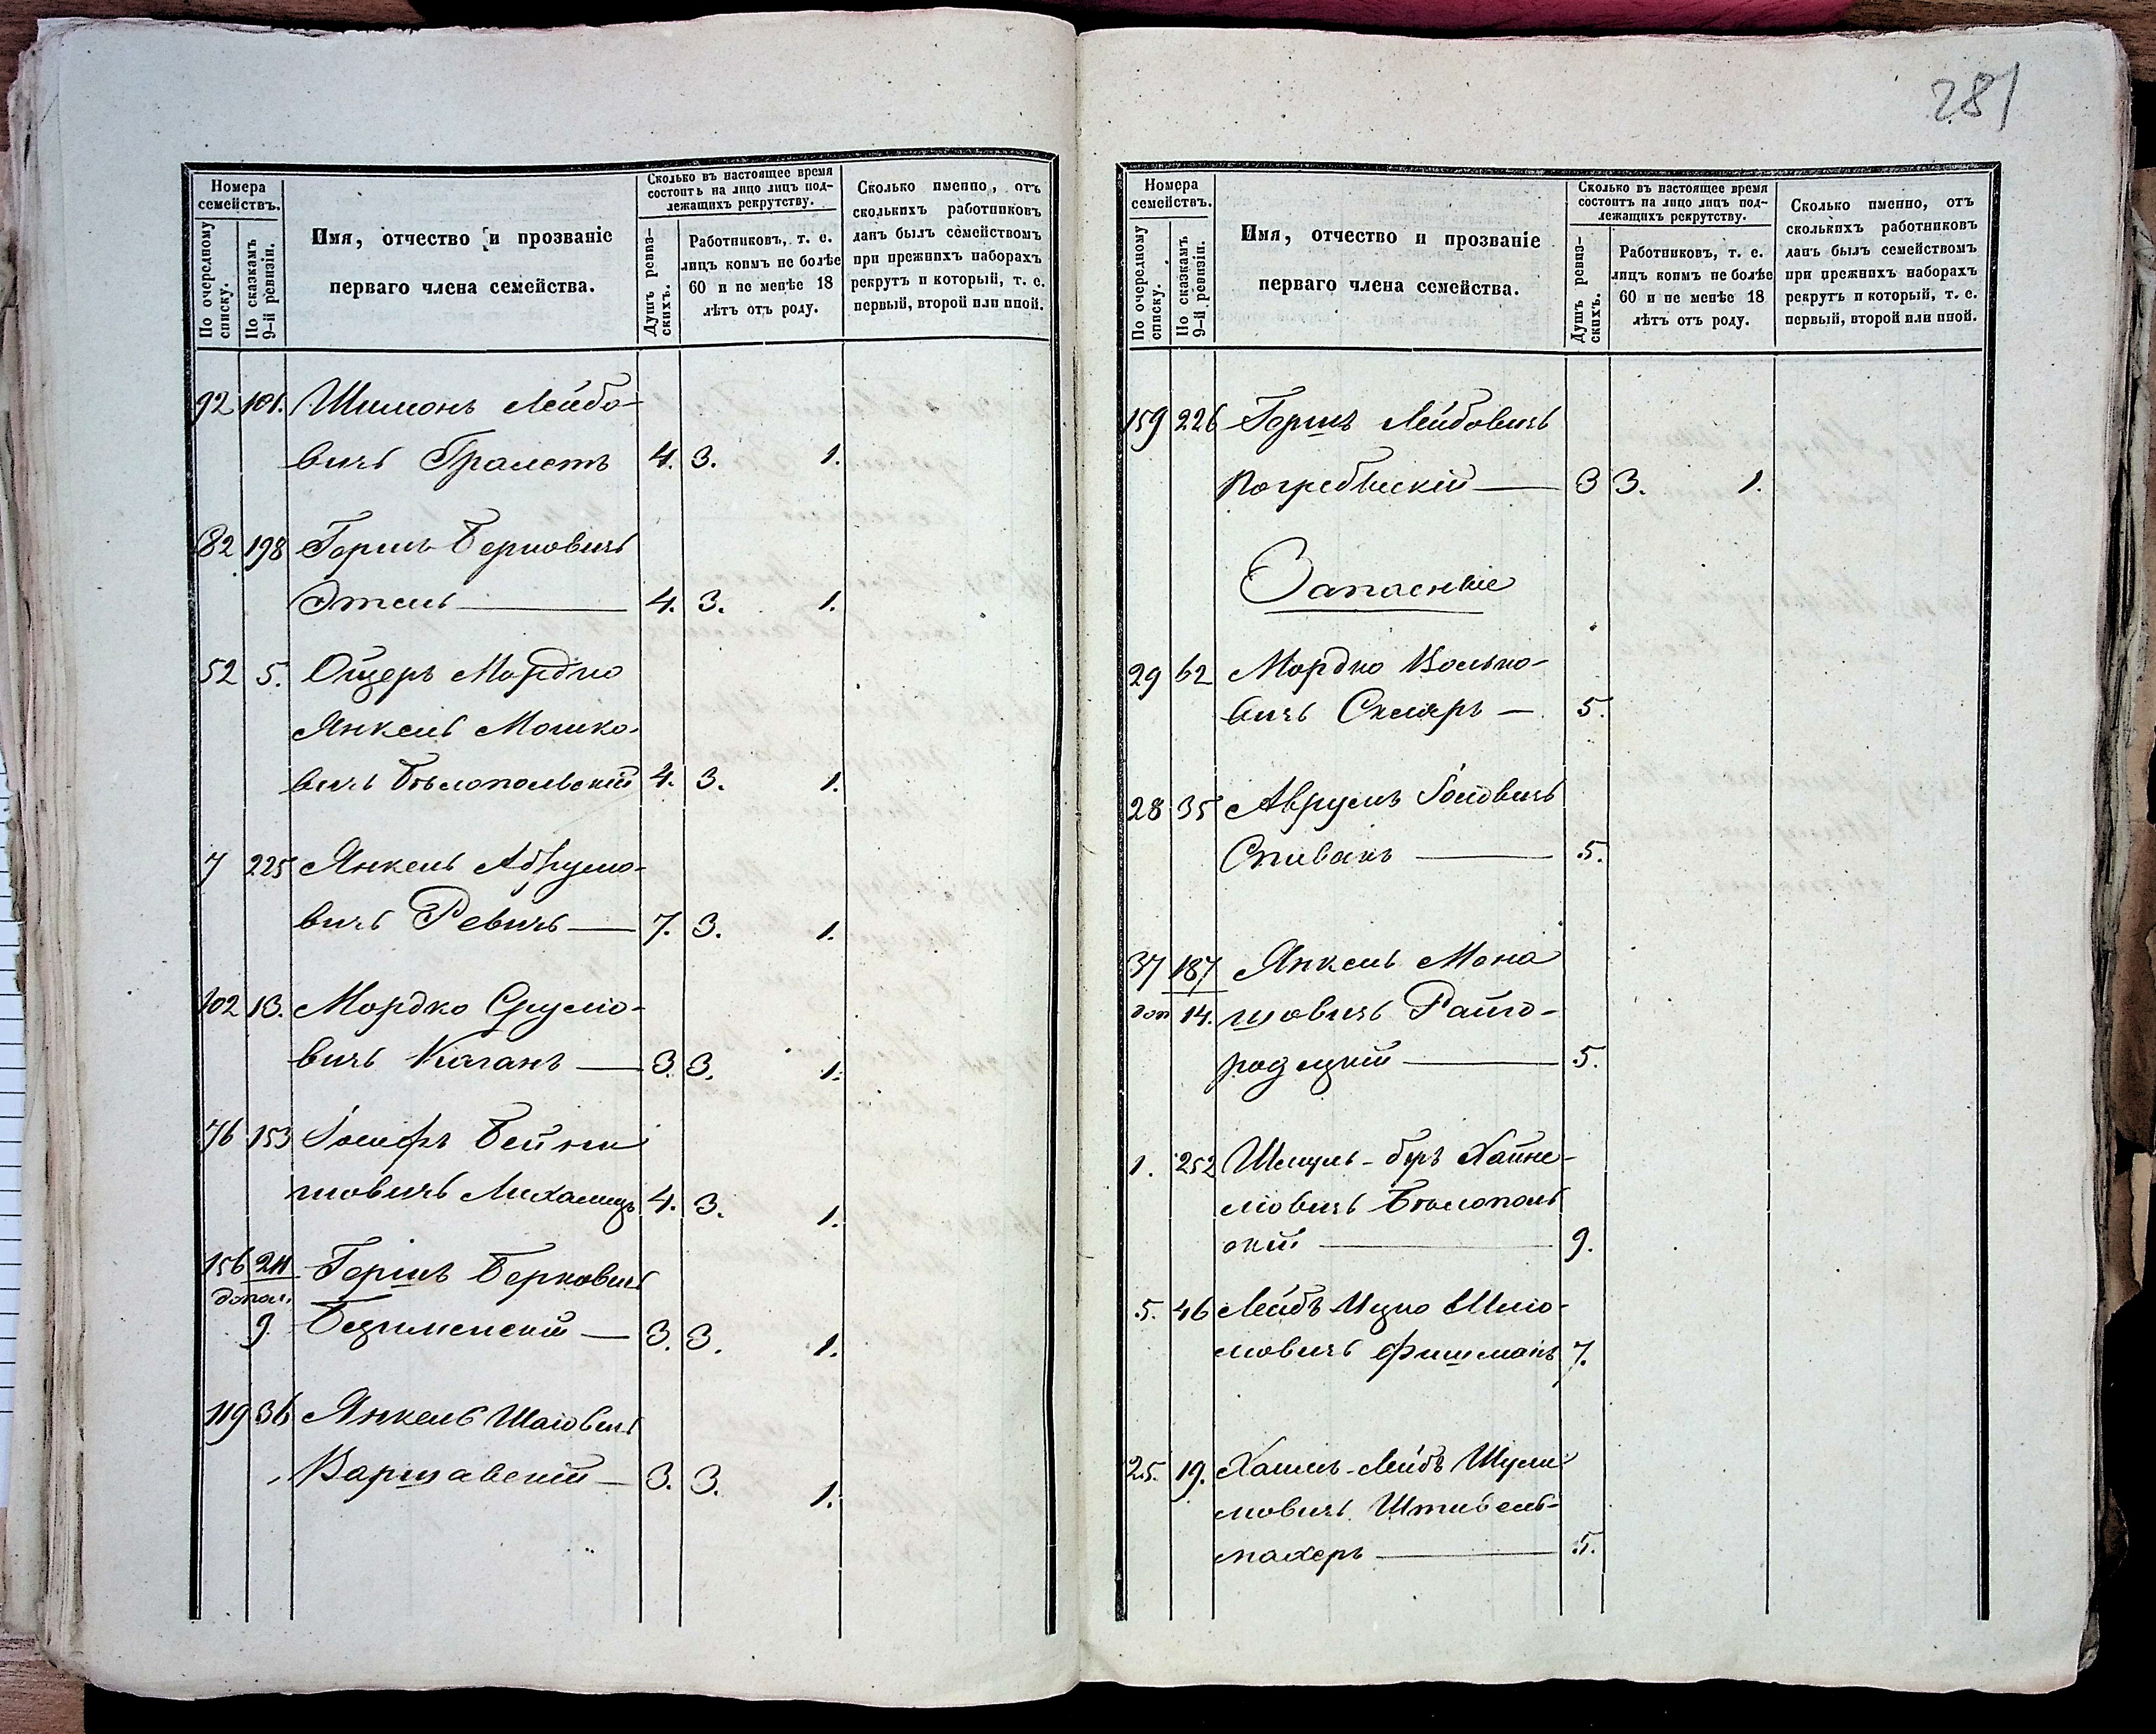 281
Номера семействъ.
По очередному списку.
По сказкамъ 9-й ревизіи.
Имя, отчество и прозваніе
перваго члена семейства.
Сколько въ настоящее время
состоитъ на лицо лицъ под-
лежащихъ рекрутству.
Душъ ревиз-
скихъ.
Работниковъ, т. е.
лицъ коимъ не болѣе
60 и не менѣе 18
лѣтъ отъ роду.
Сколько именно, отъ
сколькихъ работниковъ
данъ былъ семействомъ
при прежнихъ наборахъ
рекрутъ и который, т. е.
первый, второй или иной.
92 101. Шимонъ Лейбо-
вичъ 4. 3. 1.
182 198 Гершъ Берковичъ
Этель 4. 3. 1.
52 5. Ошеръ Мордко
Янкель Мошко-
вичъ Бѣлопольскій 4. 3. 1.
7 225 Янкель Абрумо-
вичъ Ревичъ 7. 3. 1.
102 13. Мордко Срумо-
вичъ Каганъ 3. 3. 1.
76 153 Іосифъ Бейни
шовичъ 4. 3. 1.
156 211 Гершъ Берковичъ
допол.
9. 3. 3. 1.
119 36 Янкель Шаіовичъ
Варшавскій 3. 3. 1.
Номера
семействъ.
По очередному
списку.
По сказкамъ
9-й ревизіи.
Имя, отчество и прозваніе
перваго члена семейства.
Сколько въ настоящее время
состоитъ на лицо лицъ под-
лежащихъ рекрутству.
Душъ ревиз-
скихъ.
Работниковъ, т. е.
лицъ коимъ не болѣе
60 и не менѣе 18
лѣтъ отъ роду.
Сколько именно, отъ
сколькихъ работниковъ
данъ былъ семействомъ
при прежнихъ наборахъ
рекрутъ и который, т. е.
первый, второй или иной.
159 226 Гершъ Лейбовичъ
Погребыскій 3 3. 1.
Запасные
29 62 Мордко Волько-
вичъ Скляръ 5.
28 35 Аврумъ Іосіовичъ
Спивакъ 5.
37 187 Янкель Мона
доп 14. шовичъ Райго-
родецкій 5.
1. 252 Шмуль-беръ Хаимо-
мовичъ Бѣлополь
скій 9.
5. 46 Лейбъ Ицко Шлио-
мовичъ Фишманъ 7.
25. 19. Хаимъ-Лейбъ Шули
мовичъ Штивель-
махеръ 5.